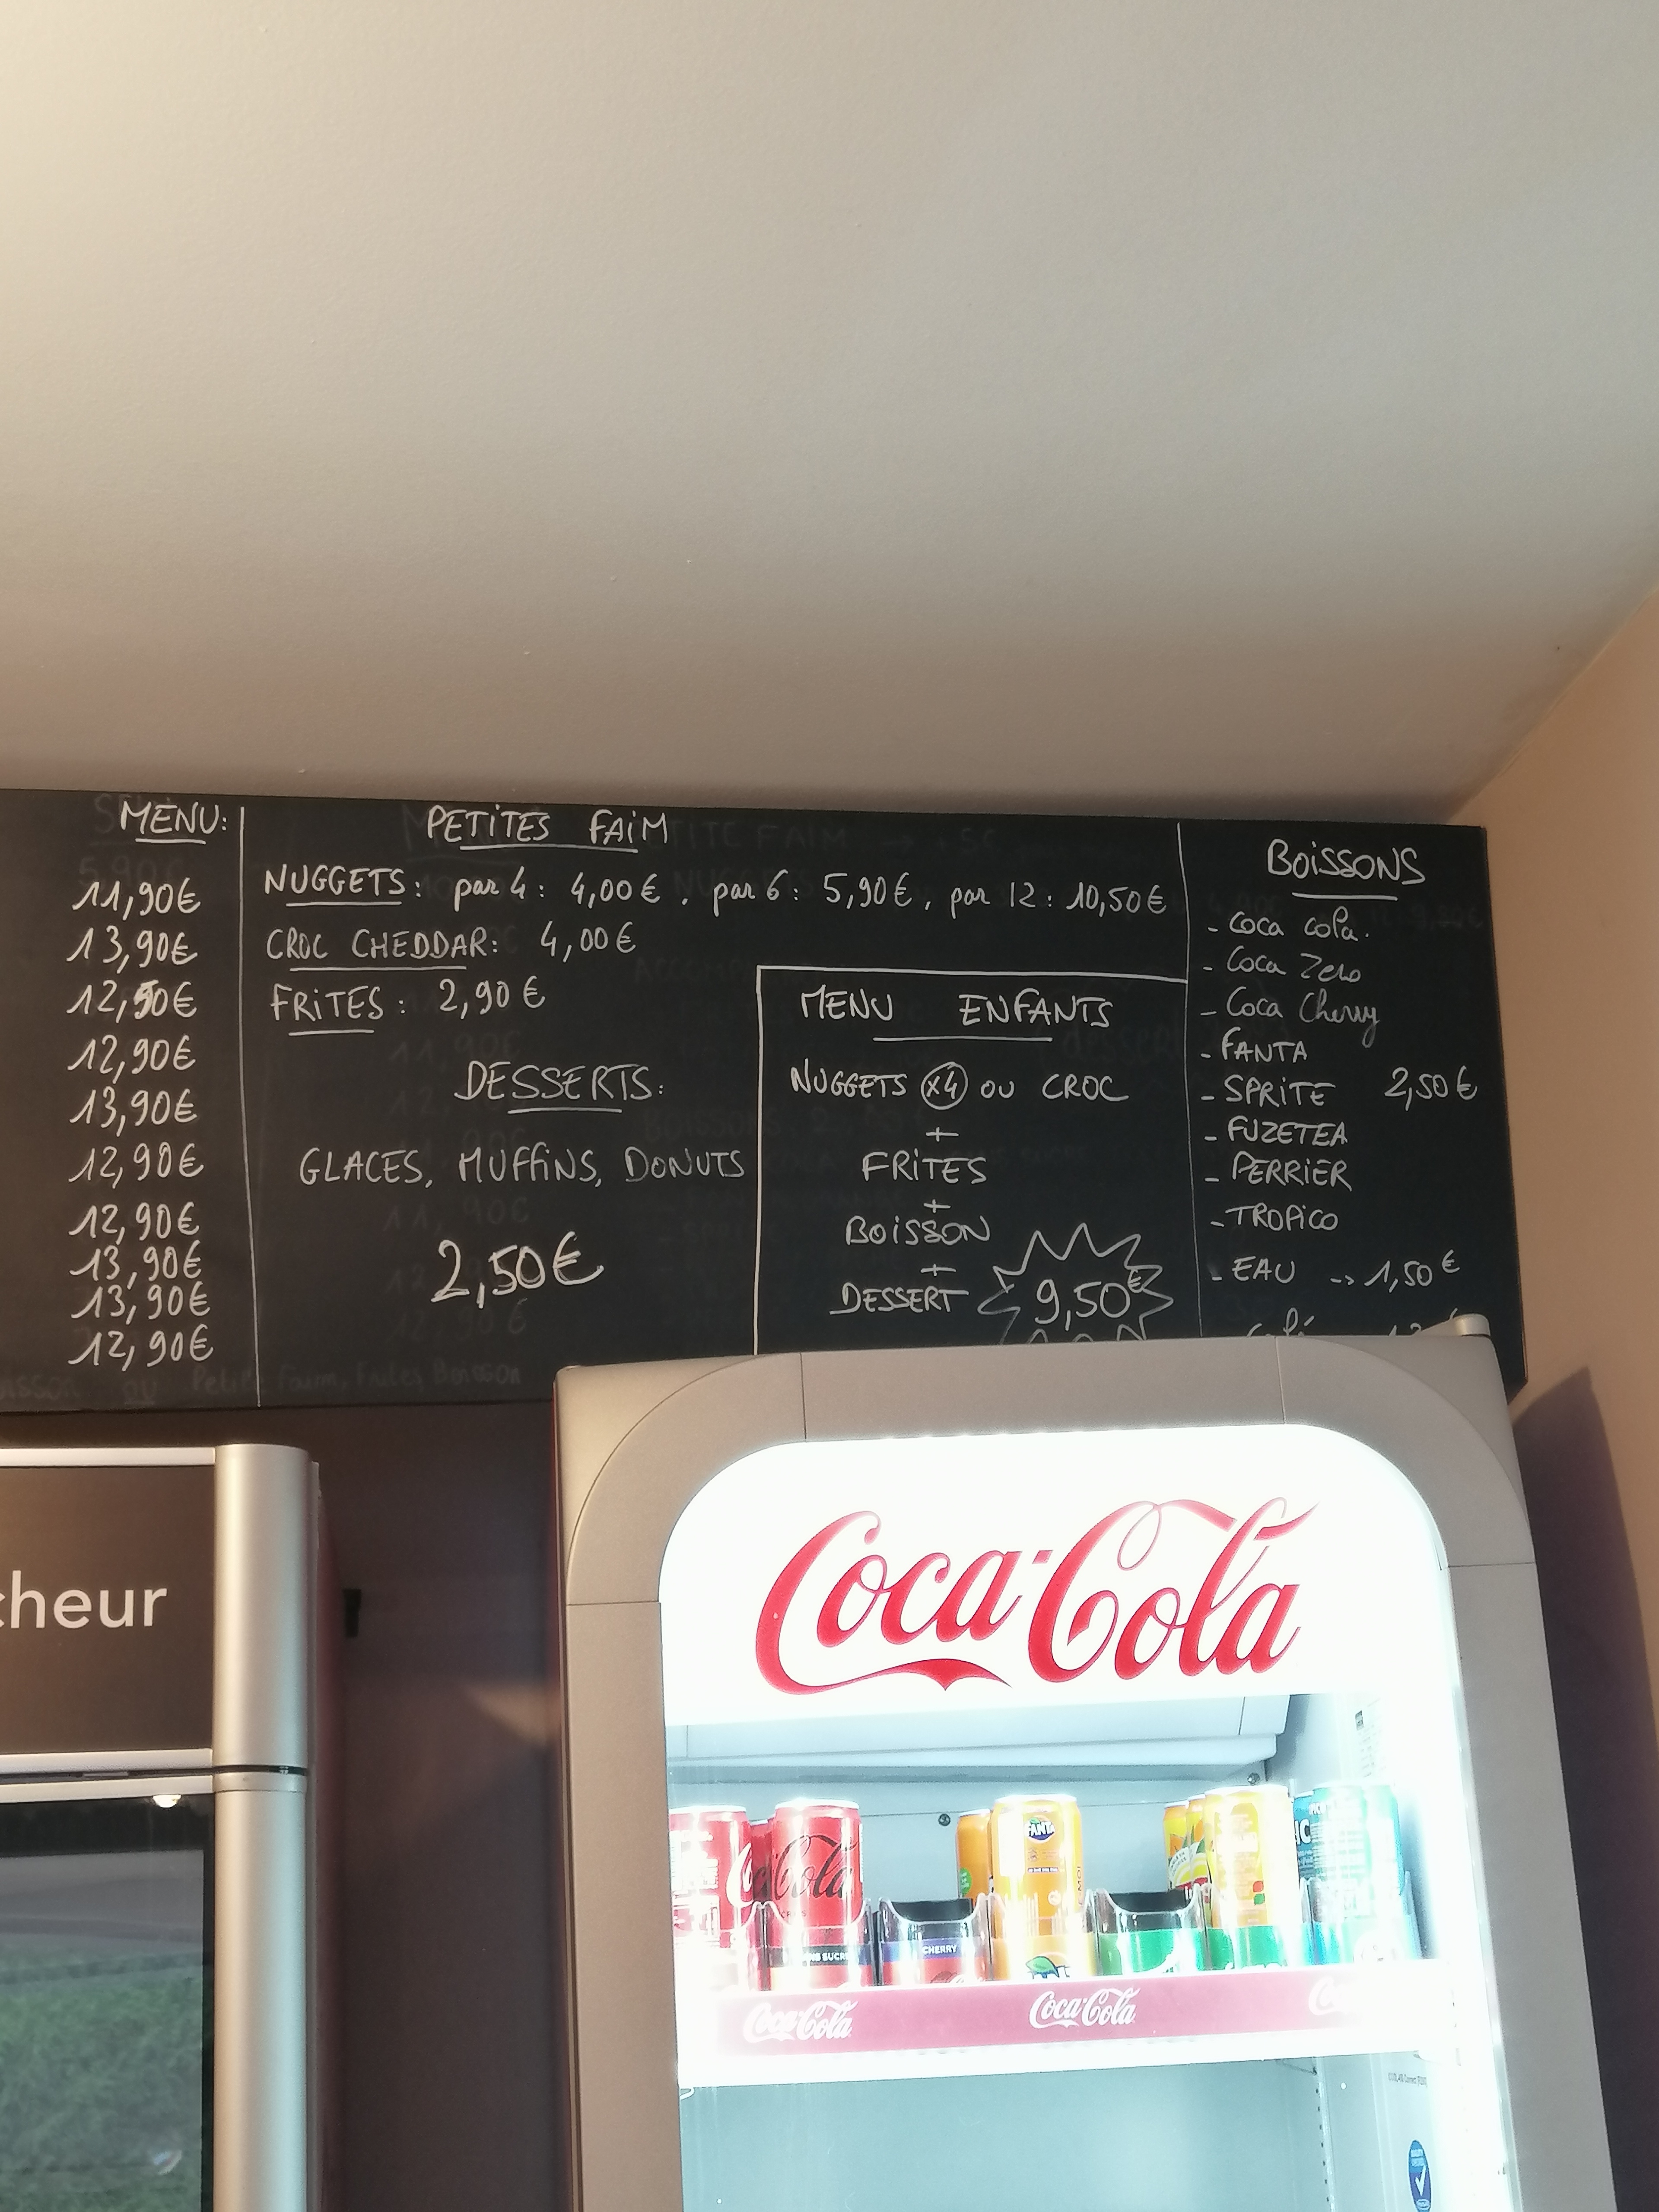 MENU:
11,90€
13,90€
12,50€
12,90€
13,90€
12,90€
12,90€
13,90€
13,90€
12,90€
PETITES FAIM
NUGGETS: par 4: 4,00€, par 6: 5,90€, par 12: 10,50€
CROC CHEDDAR: 4,00€
FRITES: 2,90€
DESSERTS:
GLACES, MUFFINS, DONUTS
2,50€
MENU ENFANTS
NUGGETS x4 OU CROC
+
FRITES
+
BOISSON
+
DESSERT 9,50€
BOISSONS
- Coca cola.
- Coca Zero
- Coca Cherry
- FANTA
- SPRITE 2,50€
- FUZETEA
- PERRIER
- TROPICO
- EAU -> 1,50€
cheur
Coca-Cola
FANTA
CHERRY
Coca-Cola
Coca-Cola